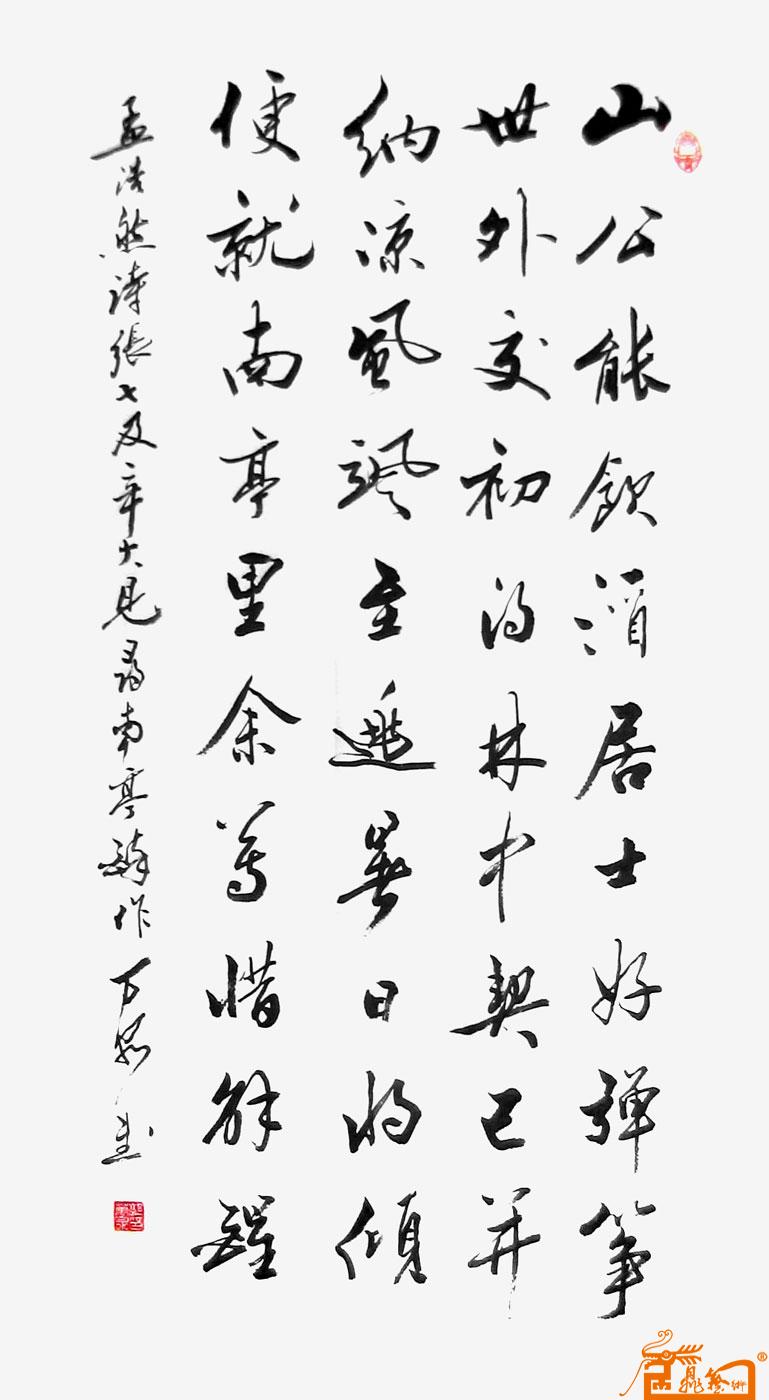 山公能飲酒居士好彈筝
世外交初得林中契已并
納凉風颯至逃暑日将傾
便就南亭里余尊惜解醒
孟浩然詩張七及辛大見尋南亭醉作